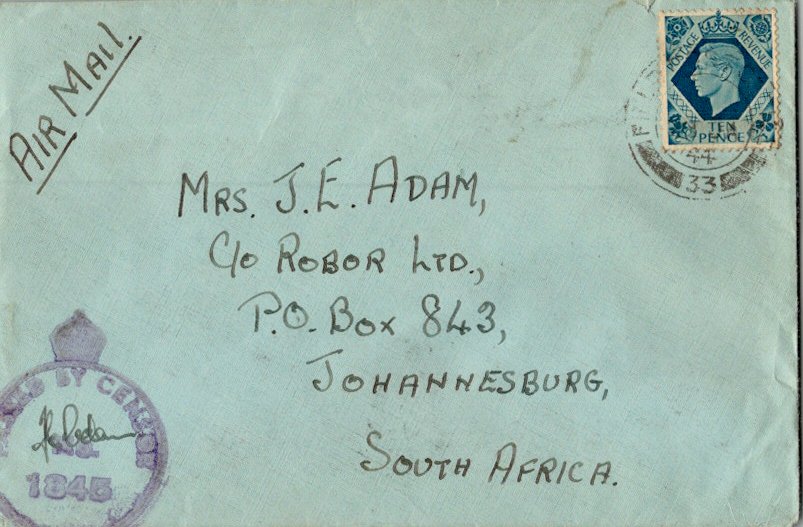 AIR MAIL.
POSTAGE REVENUE
TEN
PENCE
44
33
MRS. J. E. ADAM,
C/O ROBOR LTD.,
P.O. BOX 843,
JOHANNESBURG,
SOUTH AFRICA.
BY CENSOR
NO.
1845